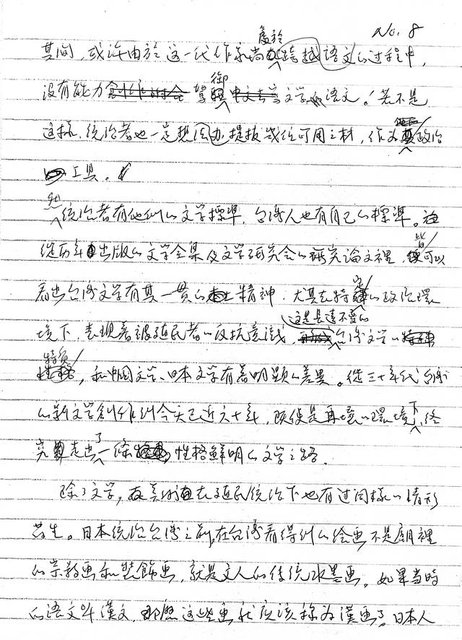 No. 8
其間，或許由於這一代作家尚處於跨越語文的过程中，
沒有能力駕御文学的語文。若不是
這樣，統治者也一定想法提拔幾位可用之材，作为政治
工具。
但統治者有他們的文学標準，台灣人也有自己的標準。
從历年出版的文学全集及文学研究会的研究論文裡，皆可以
看出台灣文学有其一貫的精神，尤其在特定的政治環
境下，表現著被殖民者的反抗意識，這是台灣文学的
特質，和中国文学、日本文学有著明顯的差異。從三十年代台灣
的新文学創作到今天已近六十年，既使是再壞的環境下，终
究走出了一條性格鮮明的文学之路。
除了文学，在美術在殖民統治下也有过同樣的情形
发生。日本統治台灣之前，在台灣看得到的绘画不是廟裡
的宗教画和裝飾画，就是文人的传統水墨画。如果当時
的語文叫漢文，那麼這些画就应該称为漢画了，日本人